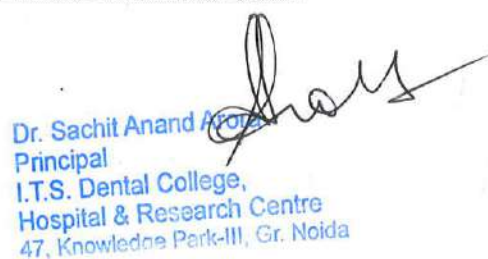 Dr. Sachit Anand Arora
Principal
I.T.S. Dental College,
Hospital & Research Centre
47, Knowledge Park-III, Gr. Noida